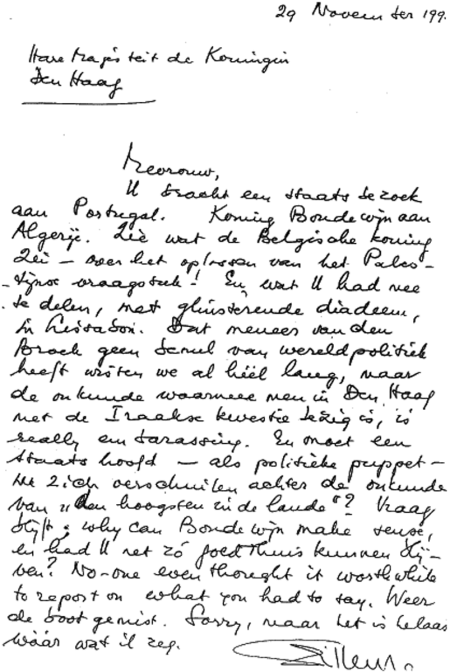 29 November 199.
Hare Majesteit de Koningin
Den Haag
Mevrouw,
U bracht een staats bezoek
aan Portugal. Koning Boudewijn aan
Algerije. Zie wat de Belgische koning
zei – over het oplossen van het Pales-
tijnse vraagstuk! En, wat U had mee
te delen, met glinsterende diadeem,
in Lissabon. Dat meneer van den
Broek geen benul van wereldpolitiek
heeft wisten we al héél lang, maar
de onkunde waarmee men in Den Haag
met de Iraakse kwestie bezig is, is
really embarassing. En moet een
staats hoofd – als politieke puppet –
zich verschuilen achter de onkunde
van „den hoogsten in de lande"? Vraag
blijft: why can Boudewijn make sense,
en had U net zó goed thuis kunnen blij-
ven? No-one even thought it worthwhile
to report on what you had to say. Weer
de boot gemist. Sorry, maar het is helaas
wáár wat ik zeg.
Willem O.